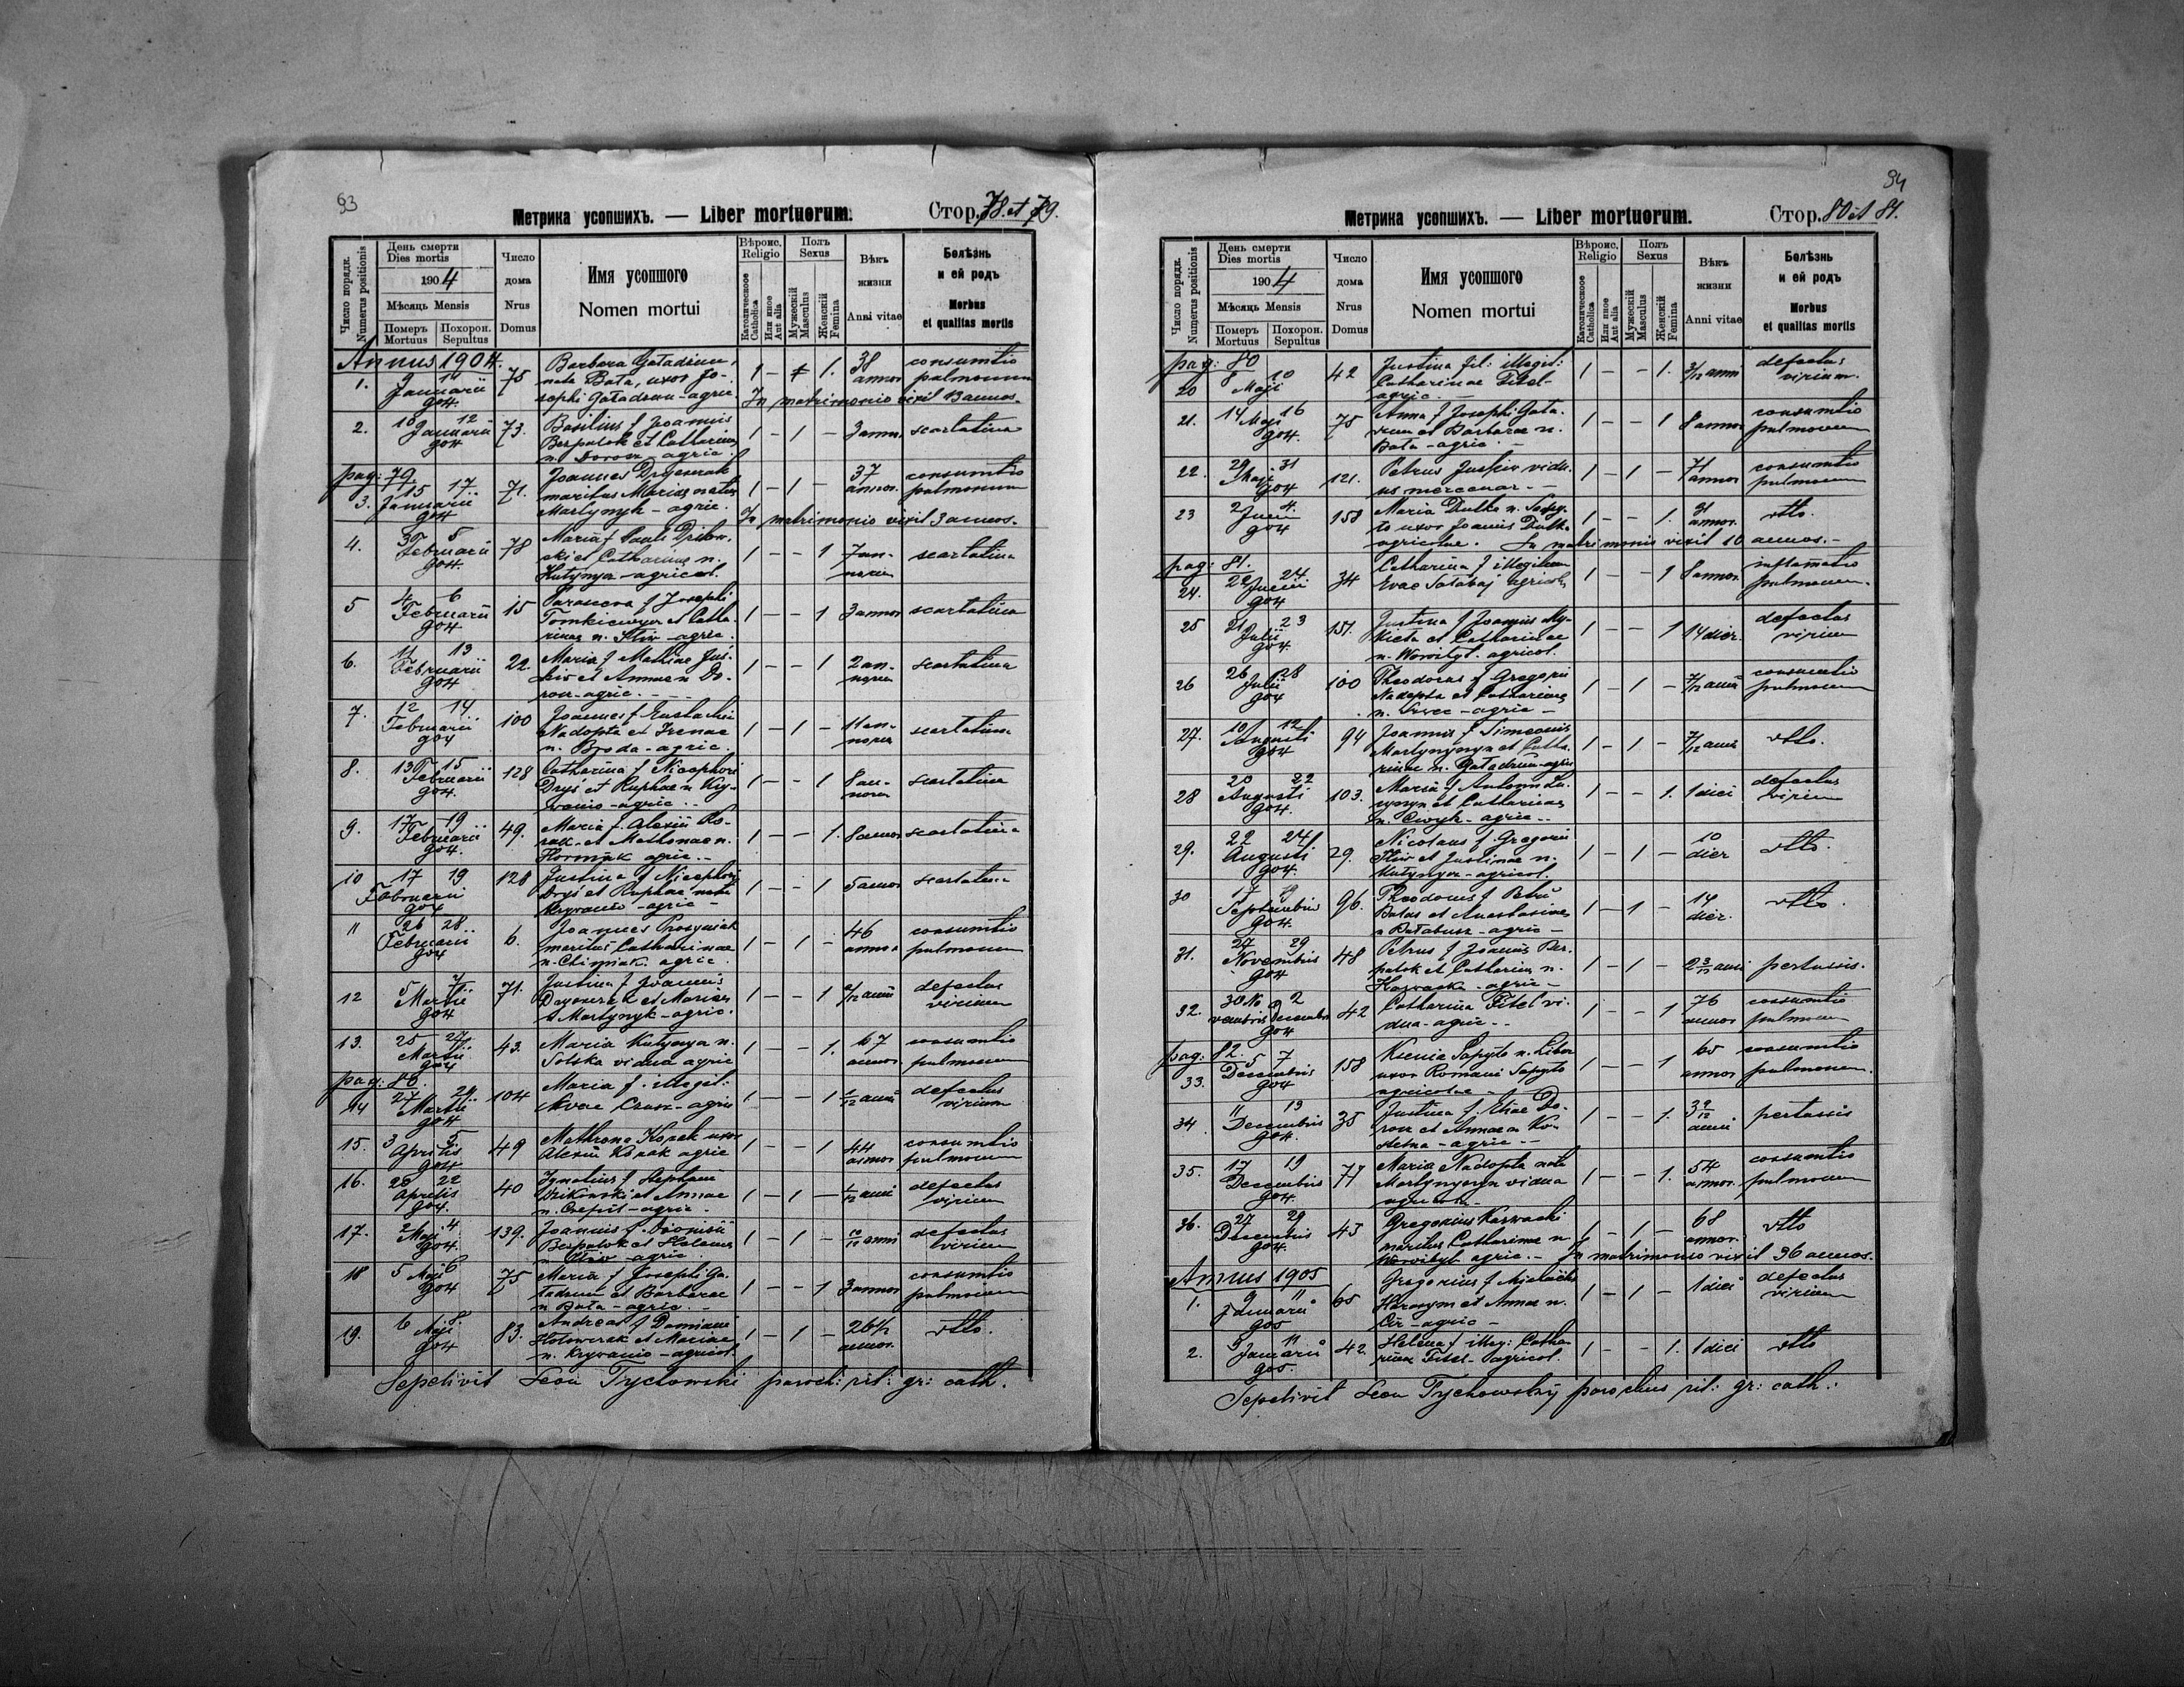 93
Метрика усопшихъ. — Liber mortuorum.
Стор. 78. et 79.
Число порядк.
Numerus positionis
День смерти
Dies mortis
1904
Мѣсяць Mensis
Померъ Mortuus
Похорон. Sepultus
Число дома
Nrus Domus
Имя усопшого
Nomen mortui
Вѣроис, Religio
Католическое Catholica
Или иное Aut alia
Полъ Sexus
Мужескій Masculus
Женскій Femina
Вѣкъ жизни
Anni vitae
Болѣзнь и ей родъ
Morbus et qualitas mortis
Annus 1904.
1. 9 11 Januarii 904. 75 Barbara Gatadiun, nata Bata, uxor Josephi Gatadiun agric. 1 – 1. 38 annor consumtio pulmonum
In matrimonio vixit 13 annos.
2. 10 12 Januarii 904 73. Basilius f Joannis Bespalok et Catharinae n. Dorosz agric. 1 – 1 – 3 annor. scarlatina
pag: 79
3. 15 17 Januarii 904 71. Joannes maritus Mariae natae Martynyk – agric. 1 – 1 – 37 annor. consumtio pulmonum
In matrimonio vixit 3 annos.
4. 3 5 Februarii 904. 78 Maria f Pauli et Catharinae n. Kutynya – agricol. 1 – – 1 7 annorum scarlatina
5 4 6 Februarii 904 15 Parasceva f Josephi et Catharinae n. – agric. 1 – – 1 3 annor scarlatina
6. 11 13 Februarii 904 22. Maria f Mathiae et Annae n. Dorosz – agric. 1 – – 1 2 annorum scarlatina
7. 12 14 Februarii 904 100 Joannes f Eustachii Nadopta et Irenae n. Broda – agric. 1 – 1 – 11 annorum scarlatina
8. 13 15 Februarii 904. 128 Catharina f Nicephori Dryś et Ruphae n. – agric. 1 – – 1 8 annorum scarlatina
9. 17 19 Februarii 904. 49. Maria f. Alexii et Mathronae n. agric. 1 – – 1. 8 annor scarlatina
10 17 19 Februarii 904 128 Justina f Nicephori Dryś et Ruphae nata – agric – 1 – – 1 5 annor scarlatina
11 26 28 Februarii 904 6. Joannes maritus Catharinae n. agric. 1 – 1 – 46 annor consumtio pulmonum
12 5 7 Martii 904 71. Justina f Joannis et Mariae n Martynyk – agric. 1 – – 1 /12 anni defectus virium
13. 25 27 Martii 904 43. Maria Kutynya n. vidua agric 1 – – 1. 67 annor. consumtio pulmonum
pag: 80.
14 27 29 Martii 904 104 Maria f. illegit: Evae – agric 1 – – 1 1/12 anni defectus virium
15. 3 5 Aprilis 904 49 Mathrona uxor Alexii agric 1 – – 1 44 annor consumtio pulmonum
16. 20 22 Aprilis 904. 40 Ignatius f Stephani et Annae n. – agric. 1 – 1 – 1/12 anni defectus virium
17. 2 4 Maji 904. 139. Joannis f. Dionisii Bespalok et Helenae n – agric 1 – 1 – anni defectus virium
18 5 6 Maji 904 75 Maria f Josephi Gatadiun et Barbarae n Bata – agric. – 1 – – 1 3 annor consumtio pulmonum
19. 6 8 Maji 904 83. Andreas f Damiani et Mariae n. – agricol. 1 – 1 – 26 annor. dtto.
Sepelivit Leon Tychowski paroch: rit: gr: cath.
94
Метрика усопшихъ. — Liber mortuorum.
Стор. 80 et 81.
Число порядк.
Numerus positionis
День смерти
Dies mortis
1904
Мѣсяць Mensis
Померъ Mortuus
Похорон. Sepultus
Число дома
Nrus Domus
Имя усопшого
Nomen mortui
Вѣроис, Religio
Католическое Catholica
Или иное Aut alia
Полъ Sexus
Мужескій Masculus
Женскій Femina
Вѣкъ жизни
Anni vitae
Болѣзнь и ей родъ
Morbus et qualitas mortis
pag: 80
20 8 10 Maji 42 Justina fil: illegit: Catharinae Fitel – agric. – 1 – – 1. 3/12 anni defectus virium.
21. 14 16 Maji 904. 75 Anna f Josephi Gatadiun et Barbarae n. Bata – agric. – 1 – – 1 8 annor consumtio pulmonum
22. 29 31 Maji 904 121. Petrus viduus mercenar. – 1 – 1 – 71 annor consumtio pulmonum
23 2 4. Junii 904 158 Maria Dutka n. Sapyto uxor Joannis Dutka agricolae. 1 – – 1. 31 annor. dtto.
In matrimonio vixit 10 annos. –
pag: 81.
24. 22 24 Junii 904 34 Catharina f illegitima Evae agricolae 1 – – 1 8 annor. inflamatio pulmonum.
25 21 23 Julii 904. 151. Justina f Joannis et Catharinae n. Worobyt. agricol. 1 – – 1 14 dier. defectus virium
26 26 28 Julii 904 100 Theodorus f Gregorii Nadopta et Catharinae n. – agric – 1 – 1 – 7/12 anni consumtio pulmonum
27. 10 12 Augusti 904 94 Joannis f Simeonis et Catharinae n. Gatadiun – agric 1 – 1 – 7/12 anni dtto.
28 20 22 Augusti 904. 103. Maria f Antonii et Catharinae n. – agric. – 1 – – 1. 1 diei defectus virium
29. 22 24 Augusti 904. 29. Nicolaus f. Gregorii et Justinae n. Kutynya – agricol. 1 – 1 – 10 dier dtto.
30 17 19 Septembris 904. 96. Theodorus f Petri et Anastasiae n – agric – 1 – 1 – 14 dier. dtto.
31. 27 29 Novembris 904 48 Petrus f Joannis Bespalok et Catharinae n. – agric – 1 – 1 – 2 3/12 anni pertussis.
32. 30 Novembris 2 Decembris 904 42 Catharina Fitel vidua – agric. – 1 – – 1 76 annor consumtio pulmonum
pag: 82.
33. 5 7 Decembris 904 158 Ksenia Sapyto n. Liber uxor Romani Sapyto agricolae – 1 – – 1 65 annor consumtio pulmonum.
34 11 13 Decembris 904. 35 Justina f. Eliae Dorosz et Annae n – agric – 1 – – 1. 3 9/12 anni pertussis
35. 17 19 Decembris 904. 77 Maria Nadopta nata vidua 1 – – 1. 54 annor. consumtio pulmonum
36. 27 29 Decembris 904. 43 Gregorius maritus Catharinae n Worobyt agric. – 1 – 1 – 68 annor. dtto
In matrimonio vixit 36 annos.
Annus 1905
1. 9 11 Januarii 905 65 Gregorius f Michaelis et Annae n. – agric – 1 – 1 – 1 diei defectus virium
2. 9 11 Januarii 905. 42. Helena f illeg: Catharinae Fitel – agricol. 1 – – 1. 1 diei dtto
Sepelivit Leon Tychowskij parochus rit: gr: cath.: